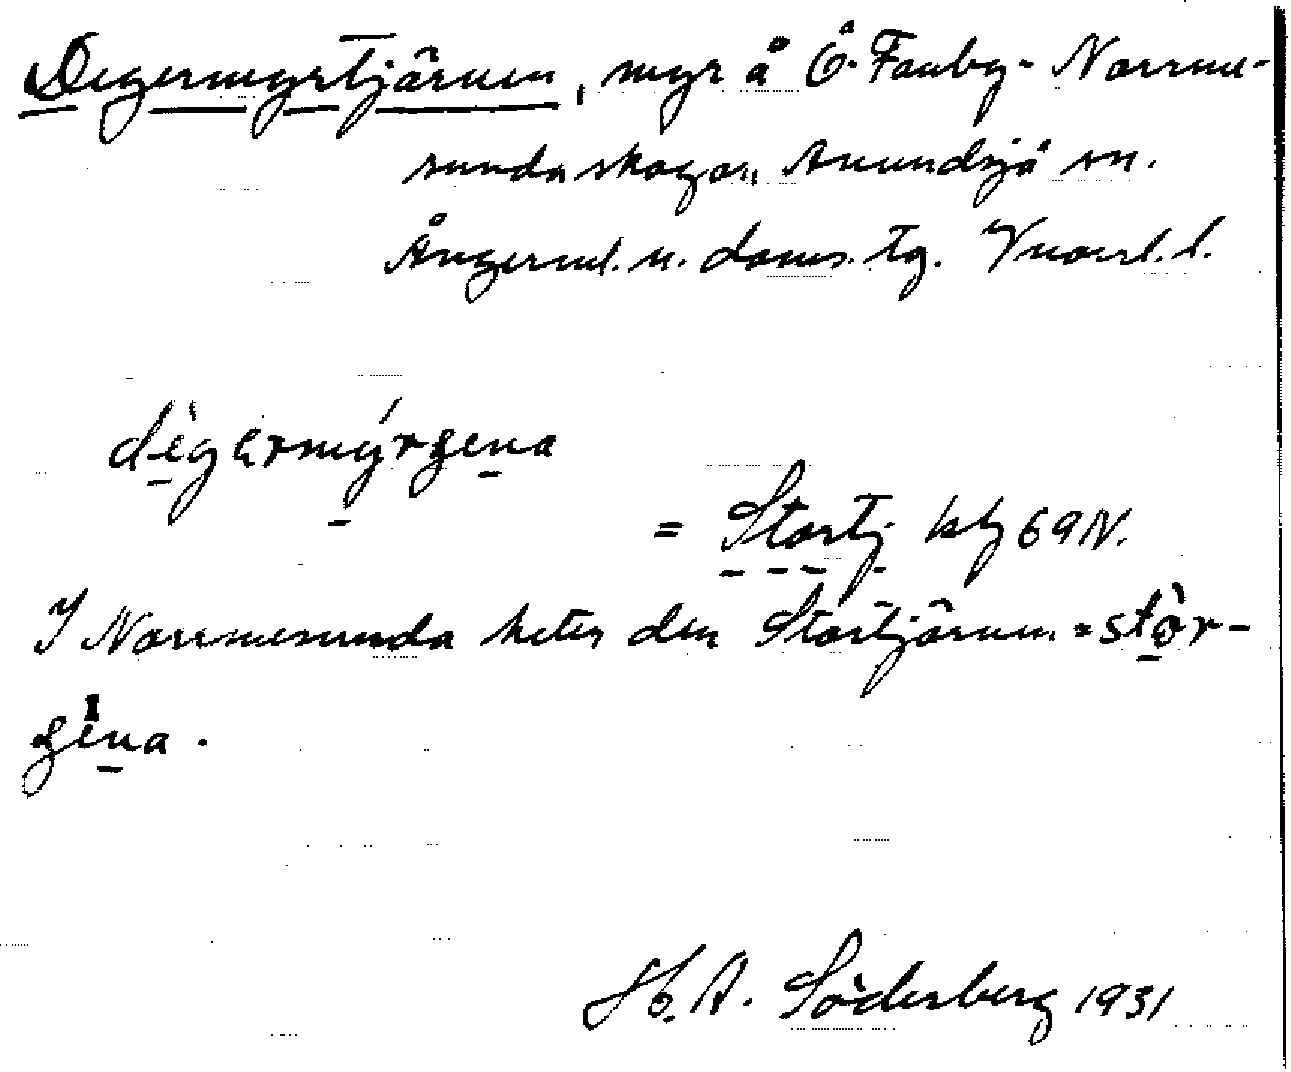 Degermyrtjärnen, myr å Ö. Fanby- Norrme-
sundaskogar, Anundsjö sn.
Ångerml. n. doms. tg. Vnorrl. l.
dègərmýrʂena
= Stortj kbl 69 N.
I Norrmesunda heter den Stortjärnen = stòr-
ʂèna.
H. A. Söderberg 1931